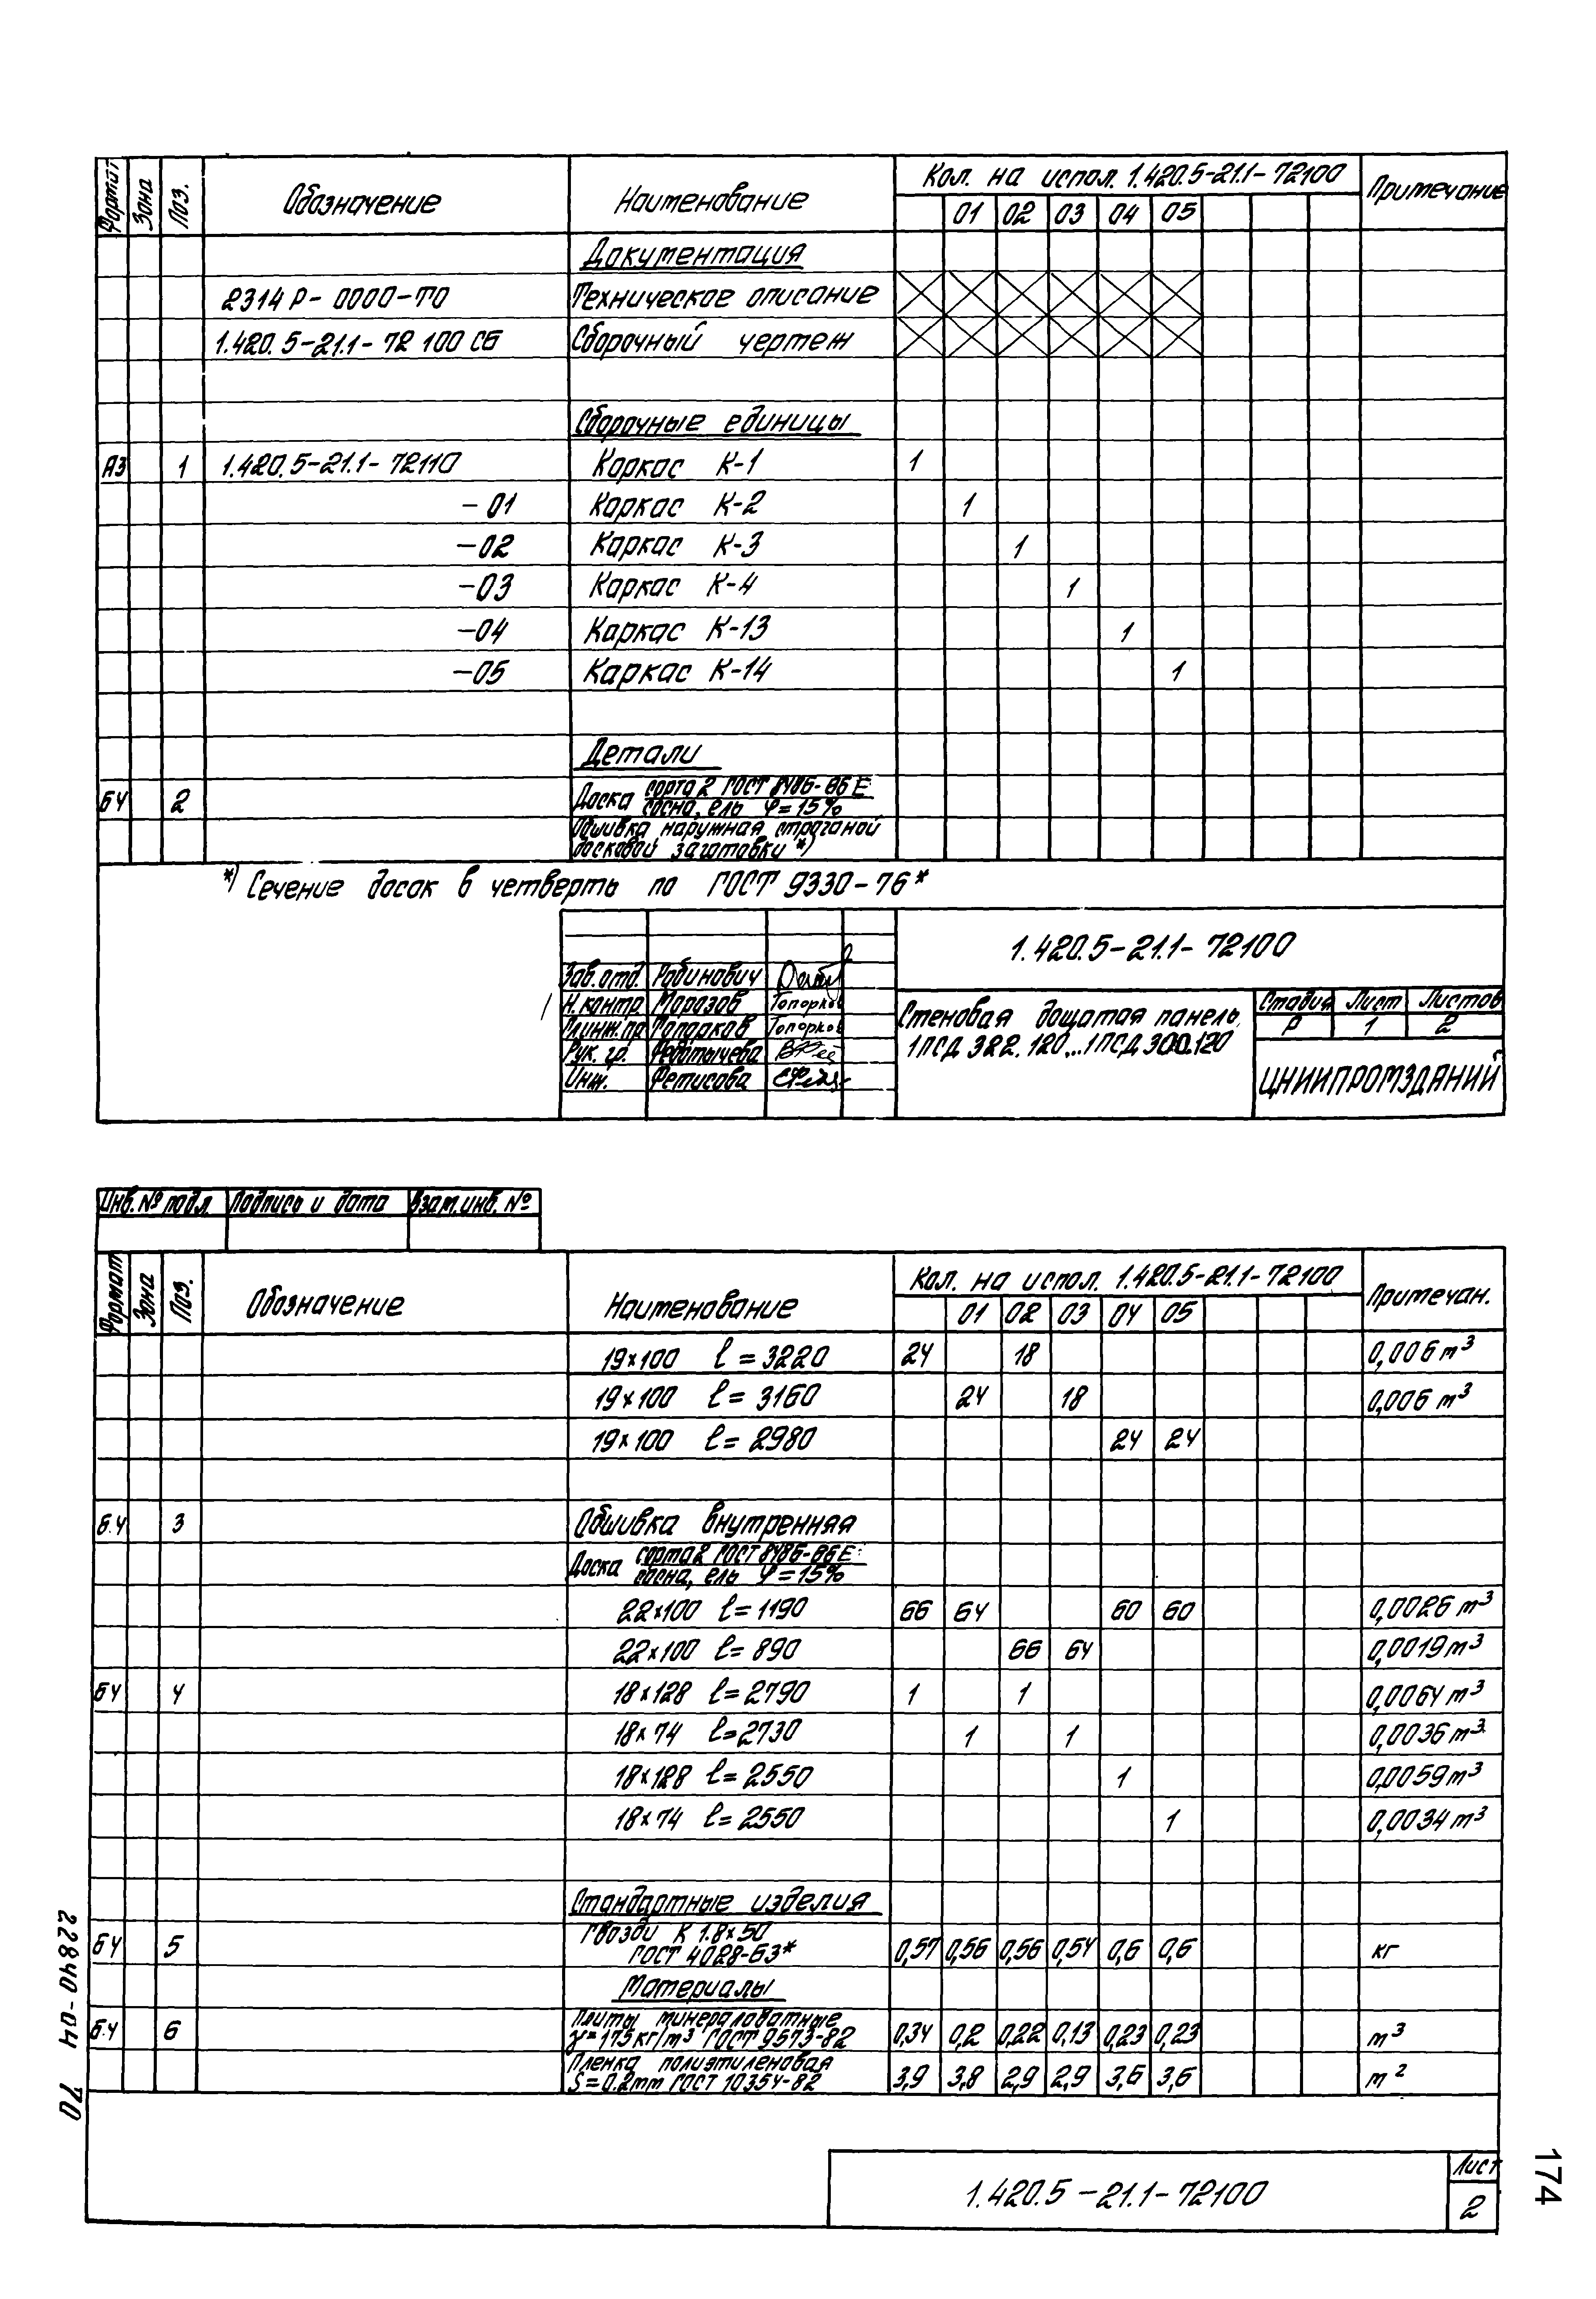 Формат Зона Поз. Обозначение Наименование Кол. на испол. 1.420.5-21.1-72100 Примечание
01 02 03 04 05
Документация
2314 Р-0000-ТО Техническое описание
1.420.5-21.1-72 100 СБ Сборочный чертеж
Сборочные единицы
А3 1 1.420.5-21.1-72110 Каркас К-1 1
-01 Каркас К-2 1
-02 Каркас К-3 1
-03 Каркас К-4 1
-04 Каркас К-13 1
-05 Каркас К-14 1
Детали
БЧ 2 Доска сорта 2 ГОСТ 8486-86 Е
сосна, ель φ=15%
Обшивка наружная строганой
досковой заготовки *)
*) Сечение досак в четверть по ГОСТ 9330-76*
1.420.5-21.1-72100
Зав. отд. Рабинович
Н. контр. Морозов Топорков
Топорков
Рук. гр. Федотычева
Инж. Фетисова
Стеновая дощатая панель
1ПСД 322.120...1ПСД 300.120
Стадия Лист Листов
Р 1 2
ЦНИИПРОМЗДАНИЙ
Инв. № подл. Подпись и дата Взам. инв. №
Формат Зона Поз. Обозначение Наименование Кол. на испол. 1.420.5-21.1-72100 Примечан.
01 02 03 04 05
19×100 ℓ=3220 24 18 0,006 m³
19×100 ℓ=3160 24 18 0,006 m³
19×100 ℓ=2980 24 24
Б.Ч 3 Обшивка внутренняя
Доска сорта 2 ГОСТ 8486-86 Е
сосна, ель φ=15%
22×100 ℓ=1190 66 64 60 60 0,0026 m³
22×100 ℓ=890 66 64 0,0019 m³
БЧ 4 18×128 ℓ=2790 1 1 0,0064 m³
18×74 ℓ=2730 1 1 0,0036 m³
18×128 ℓ=2550 1 0,0059 m³
18×74 ℓ=2550 1 0,0034 m³
Стандартные изделия
БЧ 5 Гвозди К 1.8×50
ГОСТ 4028-63* 0,57 0,56 0,56 0,54 0,6 0,6 кг
Материалы
Б.Ч 6 Плиты минераловатные
γ=175кг/m³ ГОСТ 9573-82 0,34 0,2 0,22 0,13 0,23 0,23 m³
Пленка полиэтиленовая
S=0.2mm ГОСТ 10354-82 3,9 3,8 2,9 2,9 3,6 3,6 m²
1.420.5-21.1-72100
Лист
2
22840-04 70
174